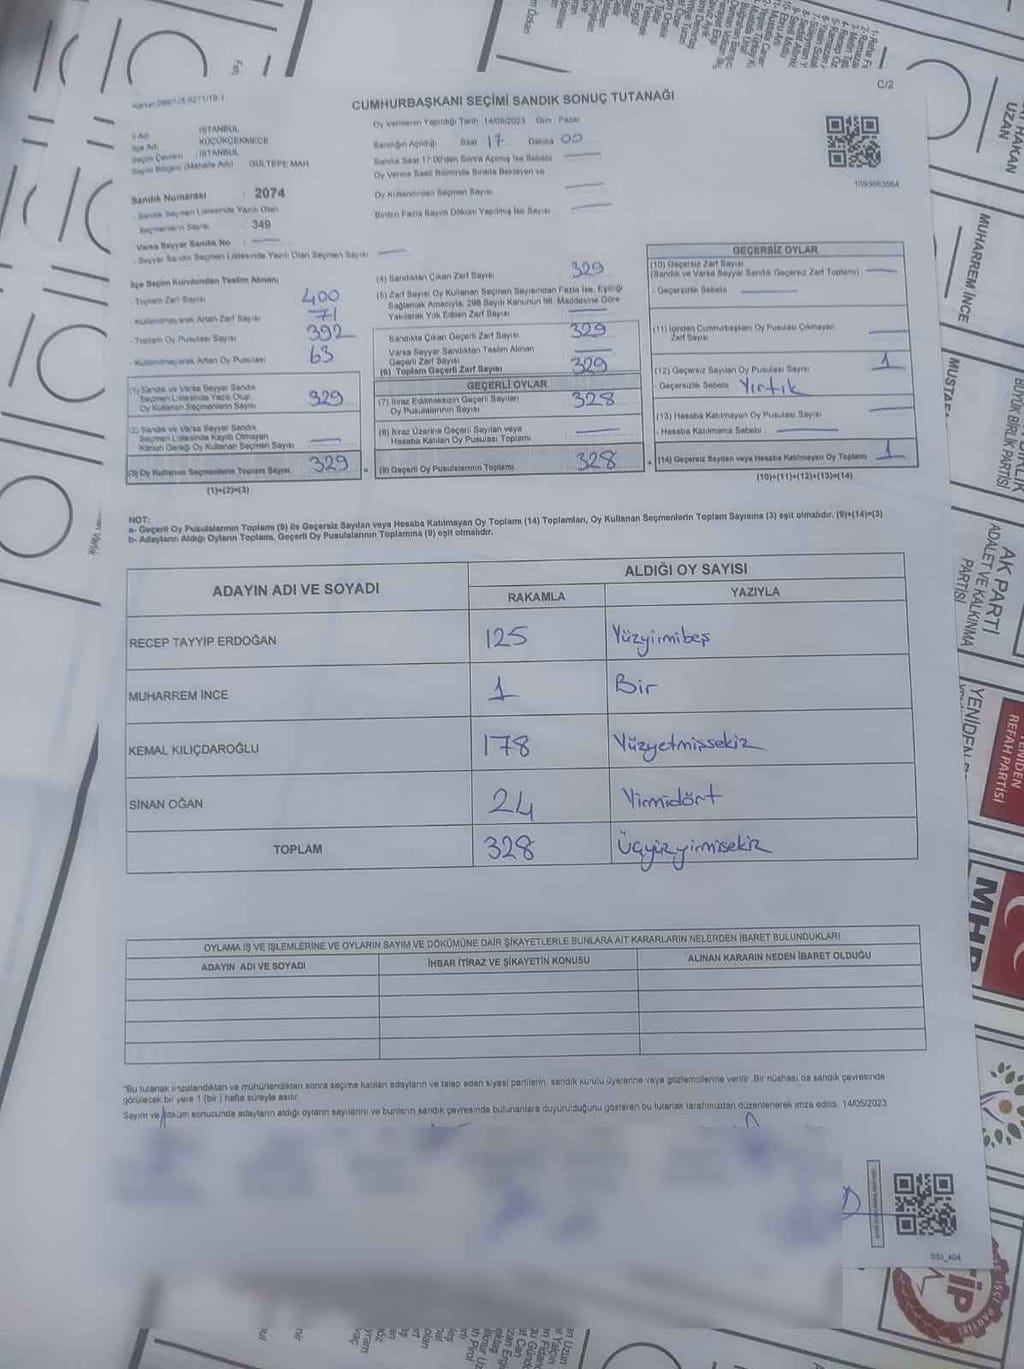 C/2
CUMHURBAŞKANI SEÇİMİ SANDIK SONUÇ TUTANAĞI
Oy Vermenin Yapıldığı Tarih 14/05/2023 Gün : Pazar
İli Adı İSTANBUL
İlçe Adı KÜÇÜKÇEKMECE
Seçim Çevresi : İSTANBUL
Seçim Bölgesi (Mahalle Adı) : GÜLTEPE MAH
Sandık Numarası : 2074
- Sandık Seçmen Listesinde Yazılı Olan
Seçmenlerin Sayısı : 349
Varsa Seyyar Sandık No :
- Seyyar Sandık Seçmen Listesinde Yazılı Olan Seçmen Sayısı
Sandığın Açıldığı Saat 17 Dakika 00
Sandık Saat 17:00'den Sonra Açılmış İse Sebebi
Oy Verme Saati Bitiminde Sırada Bekleyen ve
Oy Kullandırılan Seçmen Sayısı
Birden Fazla Sayım Döküm Yapılmış İse Sayısı
1093663064
İlçe Seçim Kurulundan Teslim Alınan;
- Toplam Zarf Sayısı 400
- Kullanılmayarak Artan Zarf Sayısı 71
- Toplam Oy Pusulası Sayısı 392
- Kullanılmayarak Artan Oy Pusulası 63
(1) Sandık ve Varsa Seyyar Sandık
Seçmen Listesinde Yazılı Olup
Oy Kullanan Seçmenlerin Sayısı 329
(2) Sandık ve Varsa Seyyar Sandık
Seçmen Listesinde Kayıtlı Olmayan
Kanun Gereği Oy Kullanan Seçmen Sayısı
(3) Oy Kullanan Seçmenlerin Toplam Sayısı 329
(1)+(2)=(3)
(4) Sandıktan Çıkan Zarf Sayısı 329
(5) Zarf Sayısı Oy Kullanan Seçmen Sayısından Fazla İse, Eşitliği
Sağlamak Amacıyla, 298 Sayılı Kanunun 98. Maddesine Göre
Yakılarak Yok Edilen Zarf Sayısı
Sandıkta Çıkan Geçerli Zarf Sayısı 329
Varsa Seyyar Sandıktan Teslim Alınan
Geçerli Zarf Sayısı
(6) Toplam Geçerli Zarf Sayısı 329
GEÇERLİ OYLAR
(7) İtiraz Edilmeksizin Geçerli Sayılan
Oy Pusulalarının Sayısı 328
(8) İtiraz Üzerine Geçerli Sayılan veya
Hesaba Katılan Oy Pusulası Toplamı
= (9) Geçerli Oy Pusulalarının Toplamı 328
GEÇERSİZ OYLAR
(10) Geçersiz Zarf Sayısı
(Sandık ve Varsa Seyyar Sandık Geçersiz Zarf Toplamı)
- Geçersizlik Sebebi
(11) İçinden Cumhurbaşkanı Oy Pusulası Çıkmayan
Zarf Sayısı
(12) Geçersiz Sayılan Oy Pusulası Sayısı 1
- Geçersizlik Sebebi Yırtık
(13) Hesaba Katılmayan Oy Pusulası Sayısı
- Hesaba Katılmama Sebebi
+ (14) Geçersiz Sayılan veya Hesaba Katılmayan Oy Toplamı 1
(10)+(11)+(12)+(13)=(14)
NOT:
a- Geçerli Oy Pusulalarının Toplamı (9) ile Geçersiz Sayılan veya Hesaba Katılmayan Oy Toplamı (14) Toplamları, Oy Kullanan Seçmenlerin Toplam Sayısına (3) eşit olmalıdır. (9)+(14)=(3)
b- Adayların Aldığı Oyların Toplamı, Geçerli Oy Pusulalarının Toplamına (9) eşit olmalıdır.
ADAYIN ADI VE SOYADI
ALDIĞI OY SAYISI
RAKAMLA YAZIYLA
RECEP TAYYİP ERDOĞAN 125 Yüzyirmibeş
MUHARREM İNCE 1 Bir
KEMAL KILIÇDAROĞLU 178 Yüzyetmişsekiz
SİNAN OĞAN 24 Yirmidört
TOPLAM 328 Üçyüzyirmisekiz
OYLAMA İŞ VE İŞLEMLERİNE VE OYLARIN SAYIM VE DÖKÜMÜNE DAİR ŞİKAYETLERLE BUNLARA AİT KARARLARIN NELERDEN İBARET BULUNDUKLARI
ADAYIN ADI VE SOYADI İHBAR İTİRAZ VE ŞİKAYETİN KONUSU ALINAN KARARIN NEDEN İBARET OLDUĞU
"Bu tutanak imzalandıktan ve mühürlendikten sonra seçime katılan adayların ve talep eden siyasi partilerin, sandık kurulu üyelerine veya gözlemcilerine verilir. Bir nüshası da sandık çevresinde
görülecek bir yere 1 (bir) hafta süreyle asılır.
Sayım ve döküm sonucunda adayların aldığı oyların sayılarını ve bunların sandık çevresinde bulunanlara duyurulduğunu gösteren bu tutanak tarafımızdan düzenlenerek imza edildi. 14/05/2023
HAKAN
UZAN
MUHARREM İNCE
BÜYÜK BİRLİK PARTİSİ
AK PARTİ
ADALET VE KALKINMA
PARTİSİ
YENİDEN
REFAH PARTİSİ
MHP
TİP
İŞÇİ PARTİSİ